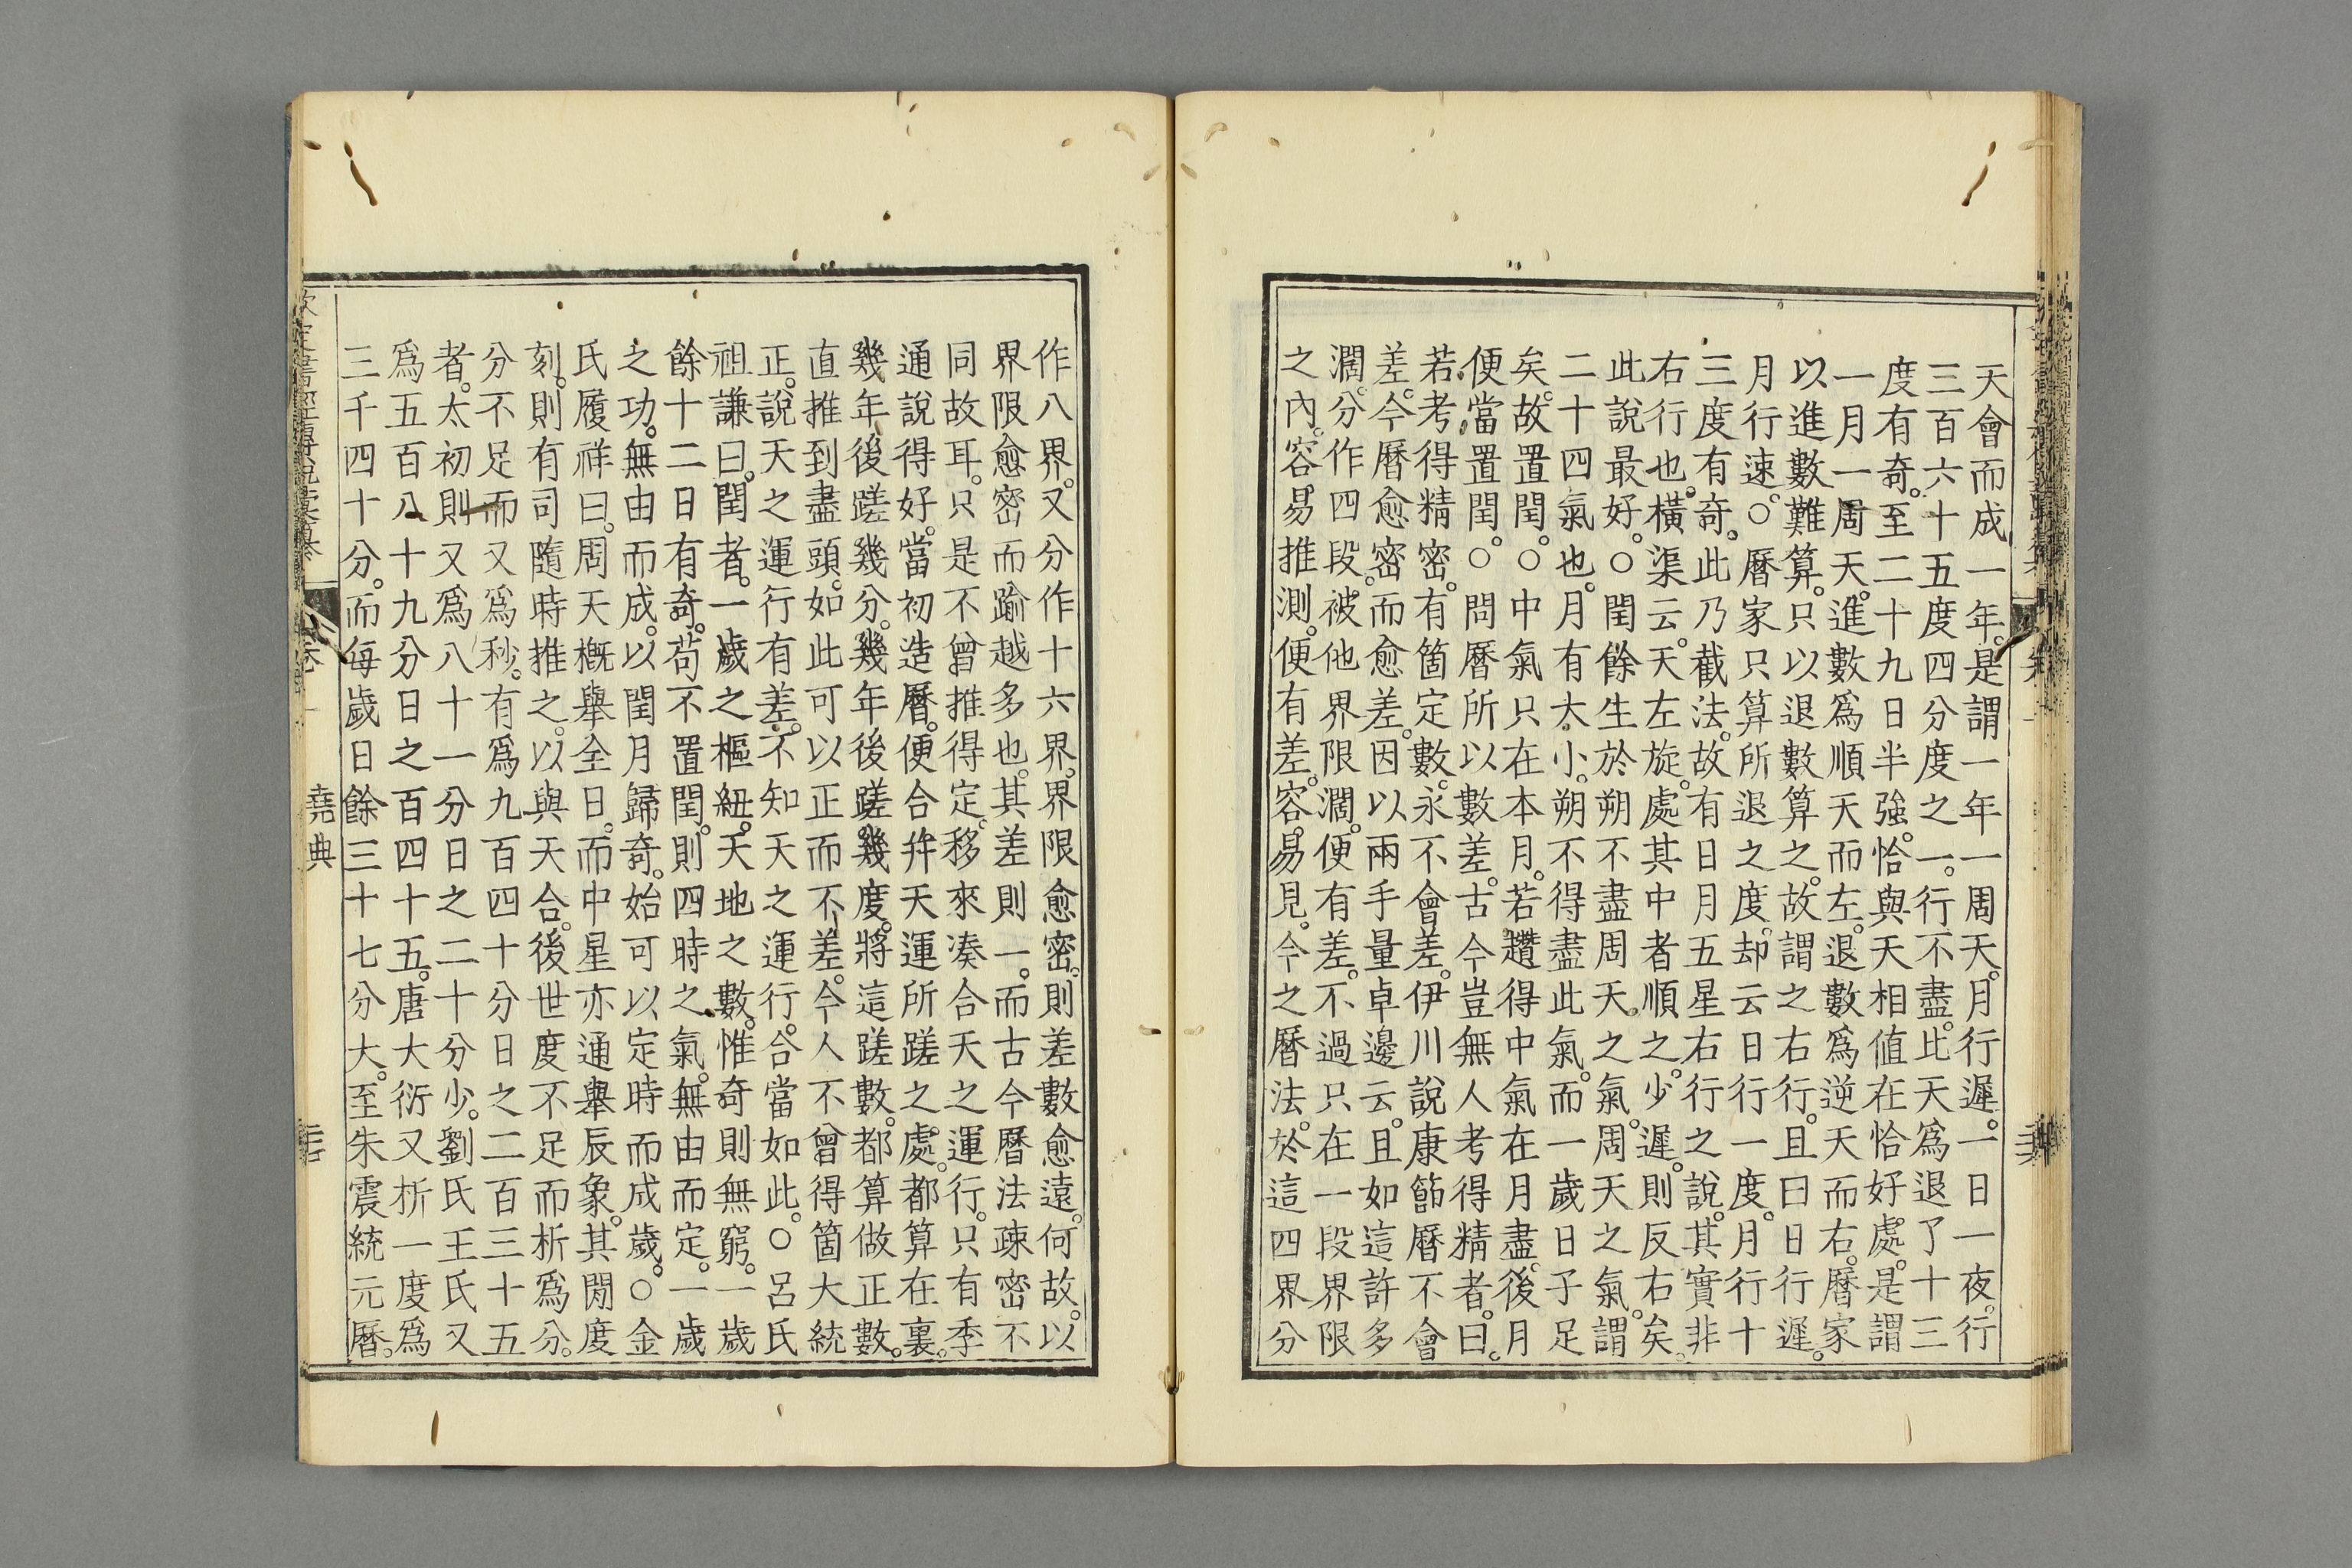 天會而成一年。是謂一年一周天。月行遲。一日一夜。行
三百六十五度四分度之一。行不盡。此天爲退了十三
度有奇。至二十九日半強。恰與天相值在恰好處。是謂
一月一周天。進數爲順天而左。退數爲逆天而右。曆家
以進數難算。只以退數算之。故謂之右行。且曰日行遲。
月行速。○曆家只算所退之度。却云日行一度。月行十
三度有奇。此乃截法。故有日月五星右行之說。其實非
右行也。橫渠云。天左旋。處其中者順之。少遲。則反右矣。
此說最好。○閏餘生於朔不盡周天之氣。周天之氣。謂
二十四氣也。月有大小。朔不得盡此氣。而一歲日子足
矣。故置閏。○中氣只在本月。若趲得中氣在月盡。後月
便當置閏。○問曆所以數差。古今豈無人考得精者。曰。
若考得精密。有箇定數。永不會差。伊川說康節曆不會
差。今曆愈密。而愈差。因以兩手量卓邊云。且如這許多
濶。分作四段。被他界限濶。便有差。不過只在一段界限
之內。容易推測。便有差。容易見。今之曆法。於這四界分
作八界。又分作十六界。界限愈密。則差數愈遠。何故。以
界限愈密而踰越多也。其差則一。而古今曆法疎密不
同故耳。只是不曾推得定。移來湊合天之運行。只有季
通說得好。當初造曆。便合幷天運所蹉之處。都算在裏。
幾年後蹉幾分。幾年後蹉幾度。將這蹉數。都算做正數。
直推到盡頭。如此可以正而不差。今人不曾得箇大統
正。說天之運行有差。不知天之運行。合當如此。○呂氏
祖謙曰。閏者。一歲之樞紐。天地之數。惟奇則無窮。一歲
餘十二日有奇。苟不置閏。則四時之氣。無由而定。一歲
之功。無由而成。以閏月歸奇。始可以定時而成歲。○金
氏履祥曰。周天槪舉全日。而中星亦通舉辰象。其閒度
刻。則有司隨時推之。以與天合。後世度不足而析爲分。
分不足而又爲秒。有爲九百四十分日之二百三十五
者。太初則又爲八十一分日之二十分少。劉氏王氏又
爲五百八十九分日之百四十五。唐大衍又析一度爲
三千四十分。而每歲日餘三十七分大。至朱震統元曆。
堯典